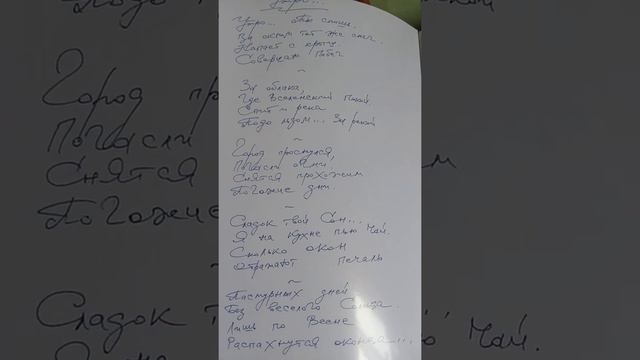 Утро...
Утро... Ты спишь.
За окном тот же снег.
Капает с крыш.
Совершаю побег
~
За облака,
Где Вселенский покой
Спит и река
Подо льдом... За рекой
~
Город проснулся,
Погасли огни
Снятся прохожим
Погожие дни.
~
Сладок твой Сон...
Я на кухне пью чай.
Сколько окон
Отражают печаль
~
Пасмурных дней
Без веселого Солнца.
Лишь по Весне
Распахнутся оконца...